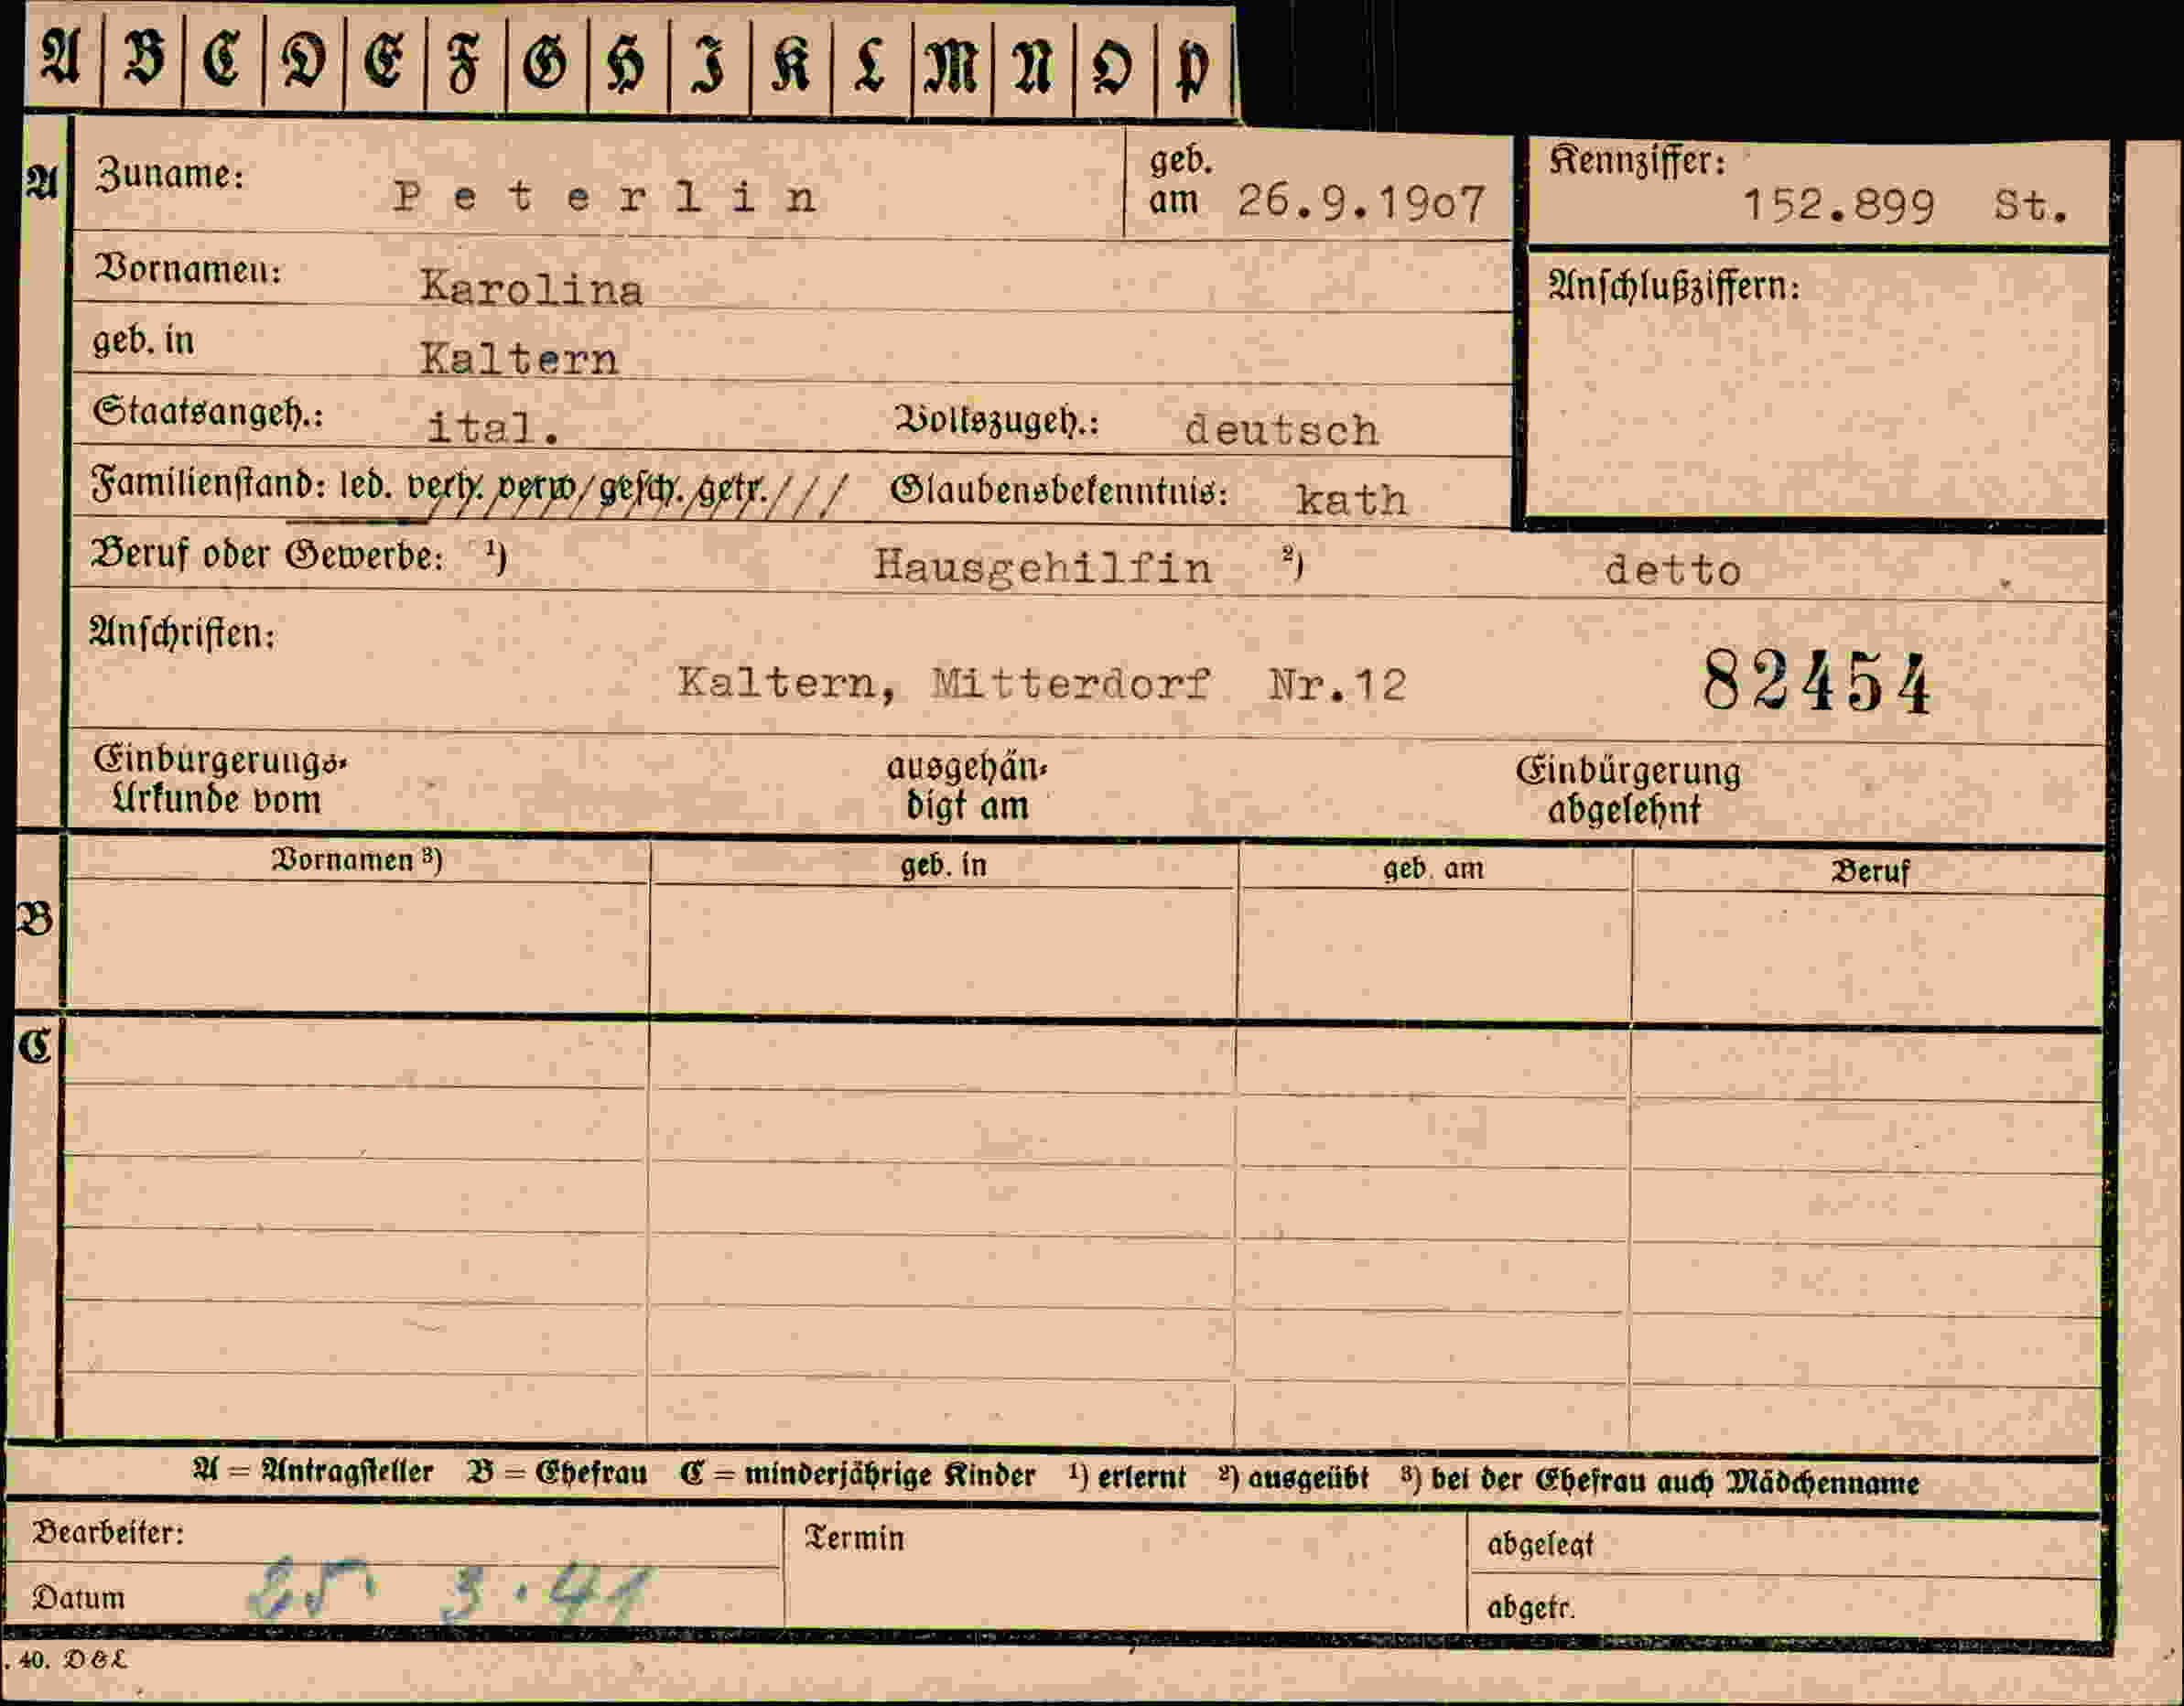 A B C D E F G H I K L M N O P
A Zuname: Peterlin geb. am 26.9.1907 Kennziffer: 152.899 St.
Vornamen: Karolina Anschlußziffern:
geb. in Kaltern
Staatsangeh.: ital. Volkszugeh.: deutsch
Familienstand: led. verh. verw. gesch. getr. /// Glaubensbekenntnis: kath
Beruf oder Gewerbe: ¹) Hausgehilfin ²) detto
Anschriften:
Kaltern, Mitterdorf Nr.12 82454
Einbürgerungs- ausgehän- Einbürgerung
Urkunde vom digt am abgelehnt
Vornamen ³) geb. in geb. am Beruf
B
C
A = Antragsteller B = Ehefrau C = minderjährige Kinder ¹) erlernt ²) ausgeübt ³) bei der Ehefrau auch Mädchenname
Bearbeiter: Termin abgelegt
Datum 25. 3. 41 abgetr.
. 40. D&L